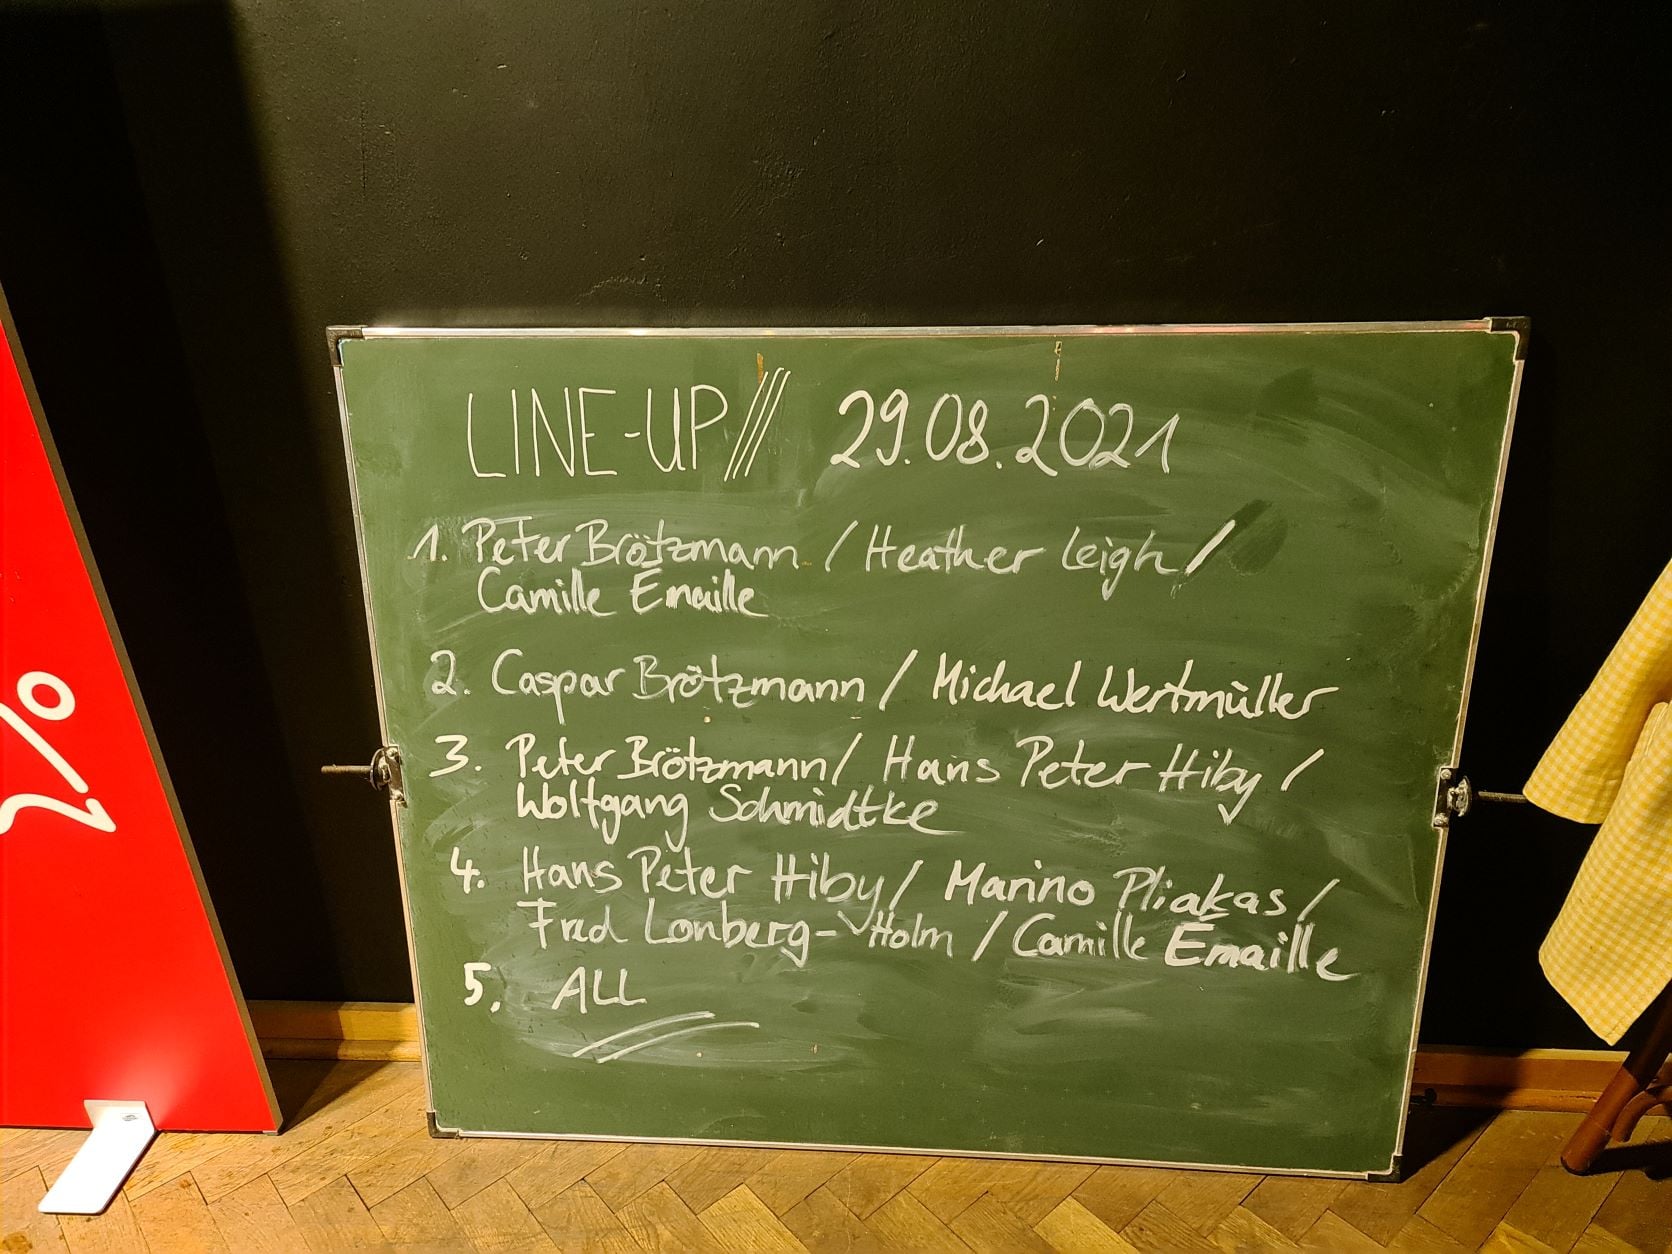 LINE-UP/// 29.08.2021
1. Peter Brötzmann / Heather Leigh /
Camille Émaille
2. Caspar Brötzmann / Michael Wertmüller
3. Peter Brötzmann / Hans Peter Hiby /
Wolfgang Schmidtke
4. Hans Peter Hiby / Marino Pliakas /
Fred Lonberg-Holm / Camille Émaille
5. ALL
%